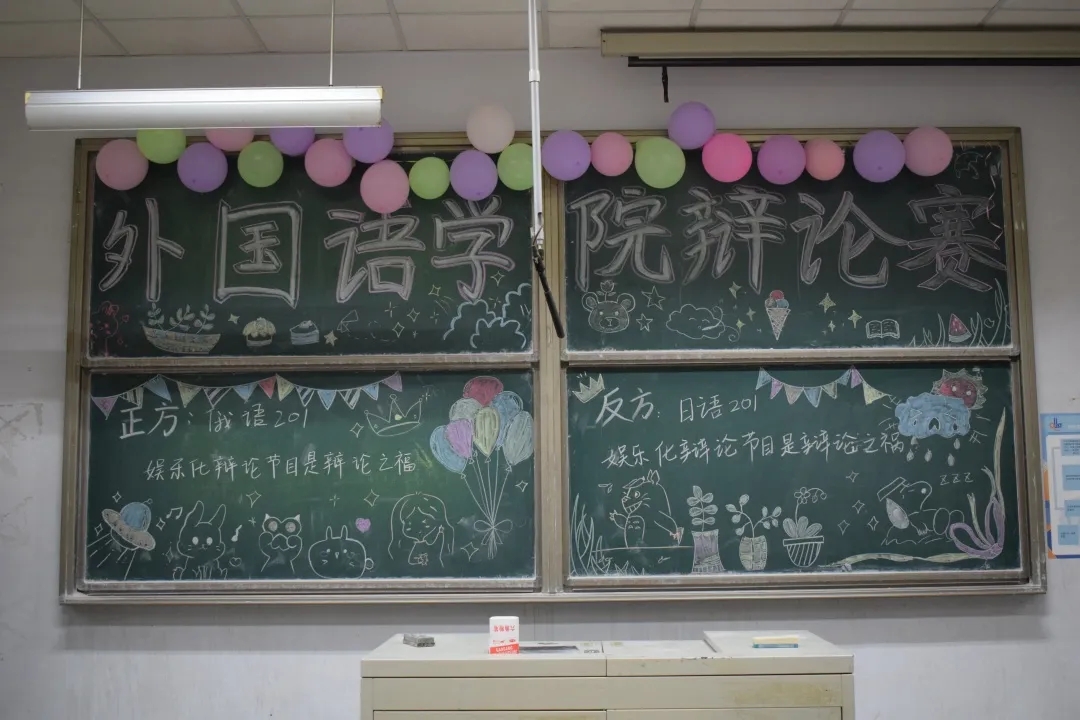 外国语学院辩论赛
正方：俄语201
娱乐化辩论节目是辩论之福
反方：日语201
娱乐化辩论节目是辩论之福
zzz